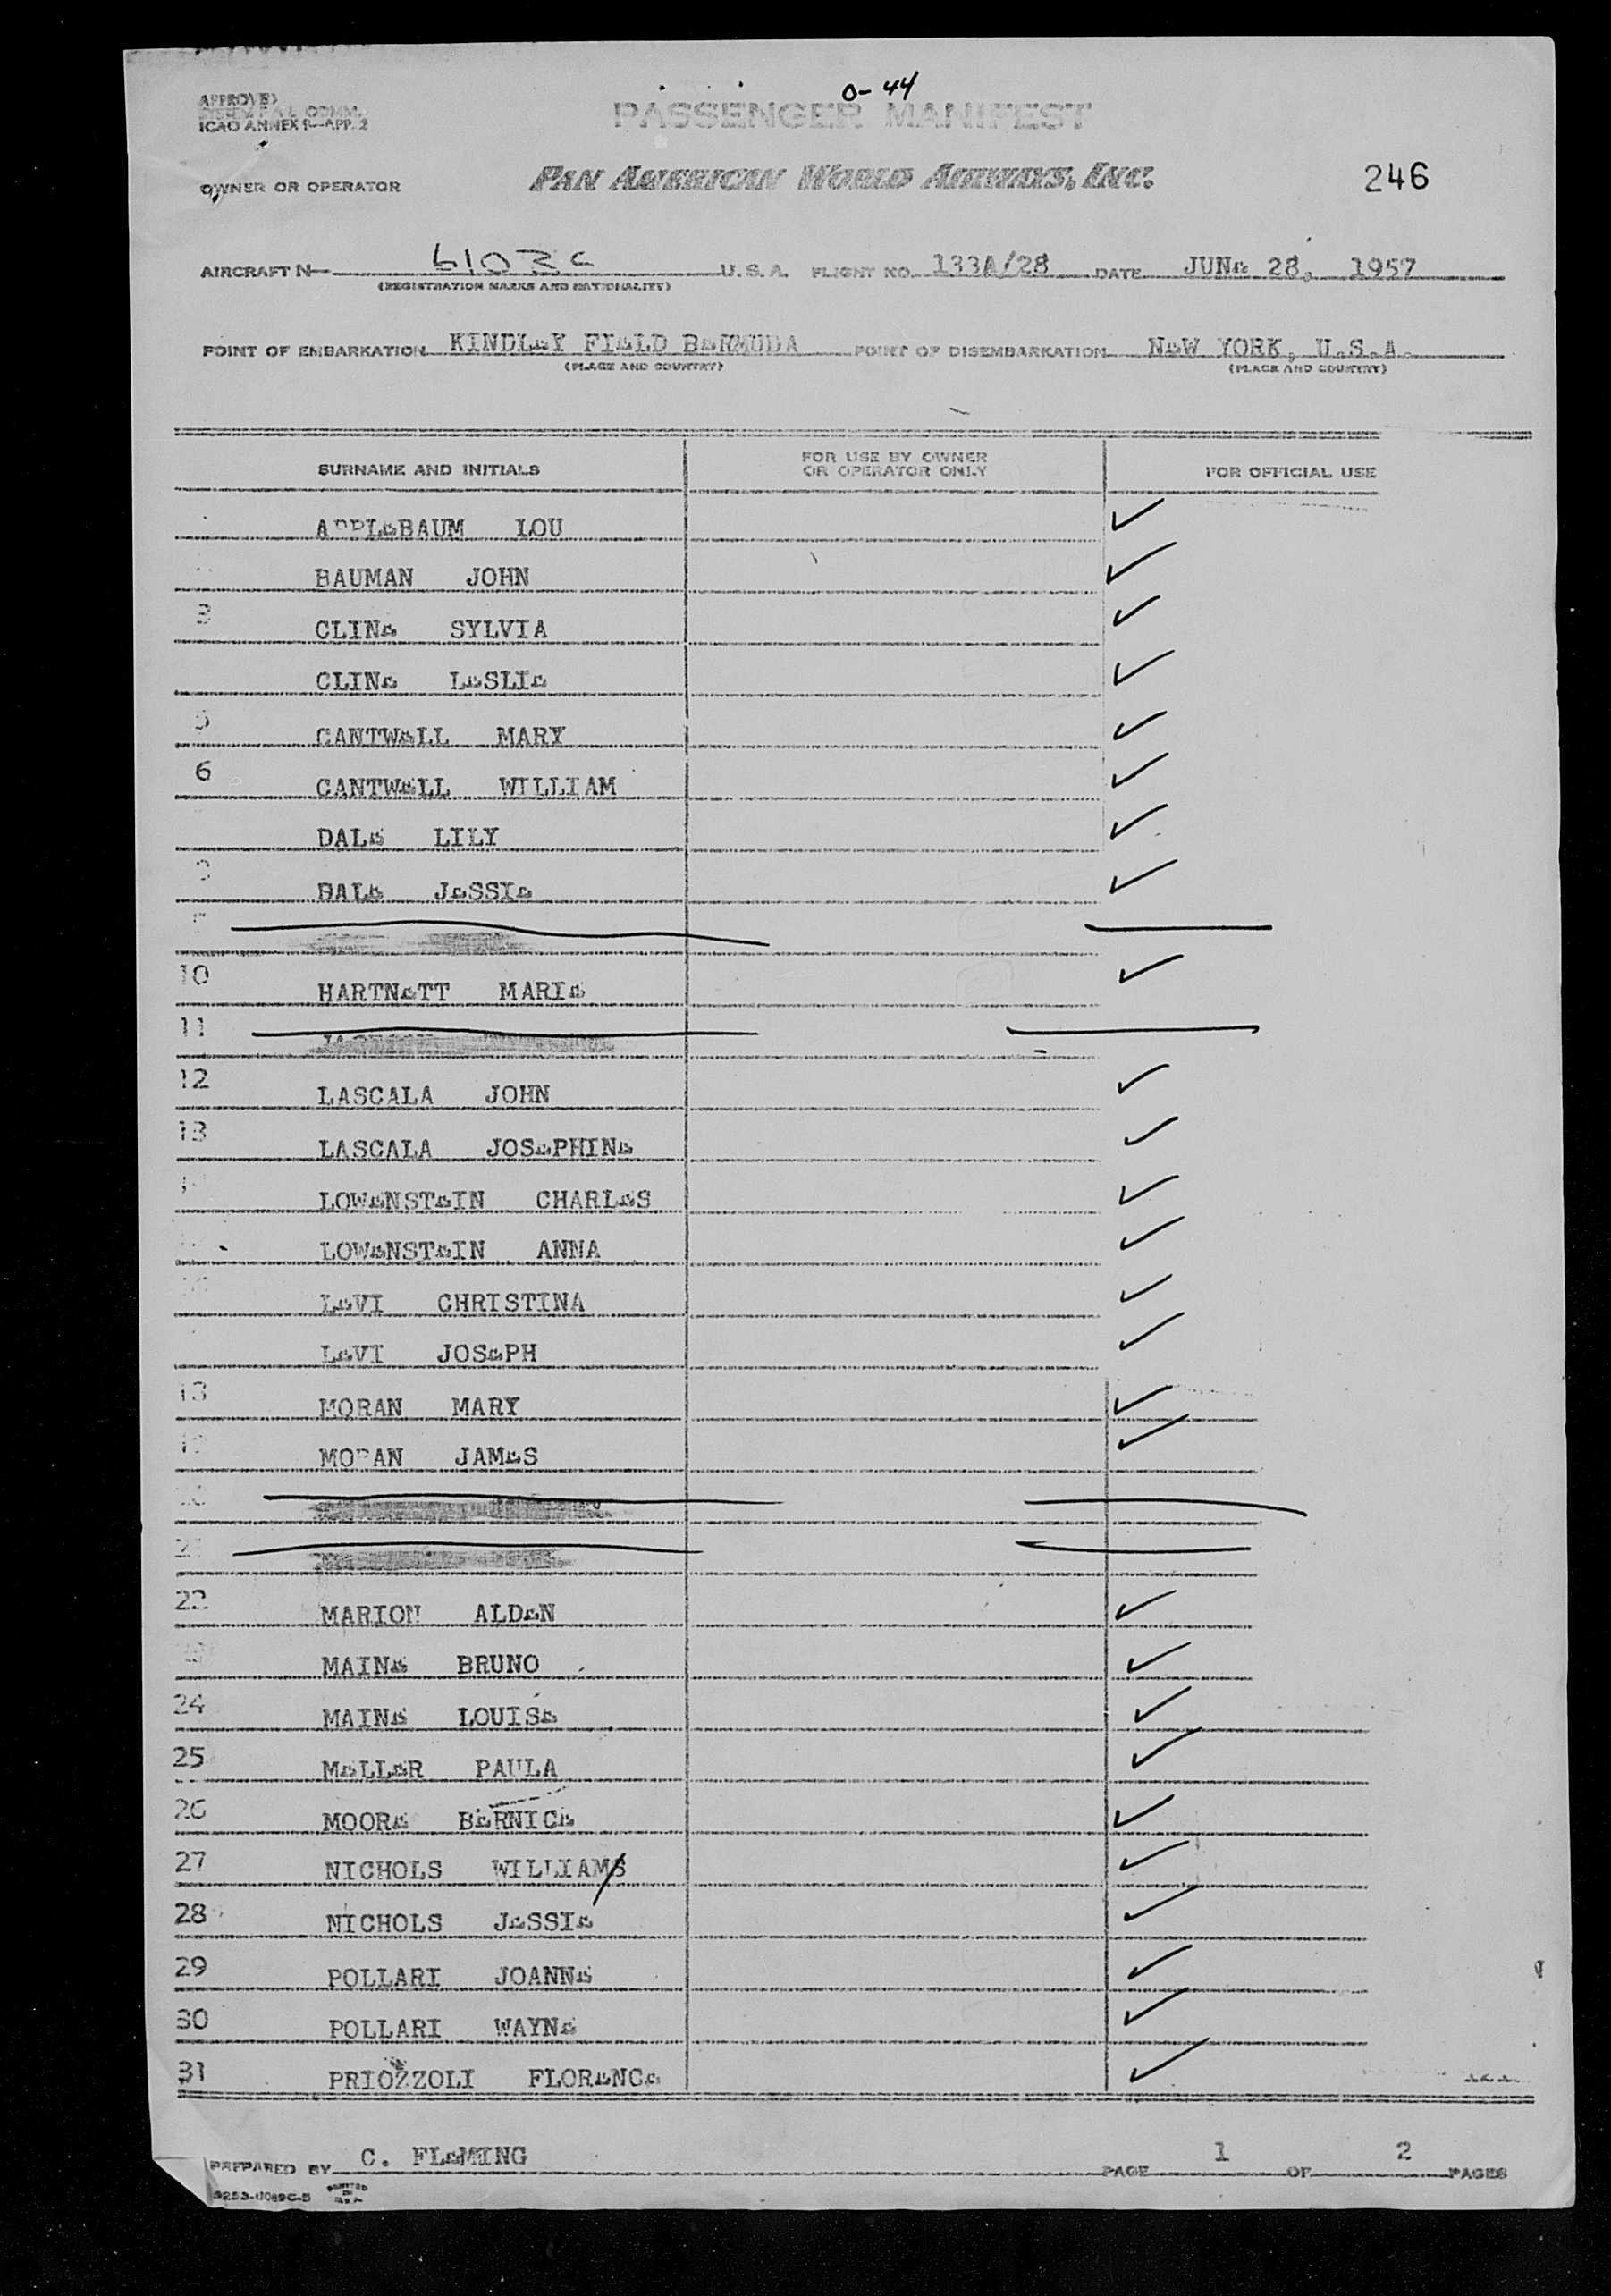 0-44
APPROVED
ICAO ANNEX 9—APP. 2
PASSENGER MANIFEST
OWNER OR OPERATOR PAN AMERICAN WORLD AIRWAYS, INC. 246
AIRCRAFT N— 6103C U.S.A. FLIGHT NO. 133A/28 DATE JUNe 28, 1957
(REGISTRATION MARKS AND NATIONALITY)
POINT OF EMBARKATION KINDLeY FIeLD BeRMUDA POINT OF DISEMBARKATION NeW YORK, U.S.A.
(PLACE AND COUNTRY) (PLACE AND COUNTRY)
SURNAME AND INITIALS FOR USE BY OWNER OR OPERATOR ONLY FOR OFFICIAL USE
APPLeBAUM LOU ✓
BAUMAN JOHN ✓
3 CLINe SYLVIA ✓
CLINe LeSLIe ✓
5 CANTWeLL MARY ✓
6 CANTWeLL WILLIAM ✓
DALe LILY ✓
DALe JeSSIe ✓
10 HARTNeTT MARIe ✓
11
12 LASCALA JOHN ✓
13 LASCALA JOSePHINe ✓
LOWeNSTeIN CHARLeS ✓
LOWeNSTeIN ANNA ✓
LeVI CHRISTINA ✓
LeVI JOSePH ✓
18 MORAN MARY ✓
19 MORAN JAMeS ✓
20
21
22 MARION ALDeN ✓
MAINe BRUNO ✓
24 MAINe LOUISe ✓
25 MeLLeR PAULA ✓
26 MOORe BeRNICe ✓
27 NICHOLS WILLIAMS ✓
28 NICHOLS JeSSIe ✓
29 POLLARI JOANNe ✓
30 POLLARI WAYNe ✓
31 PRIOZZOLI FLOReNCe ✓
PREPARED BY C. FLeMING PAGE 1 OF 2 PAGES
PRINTED IN U.S.A.